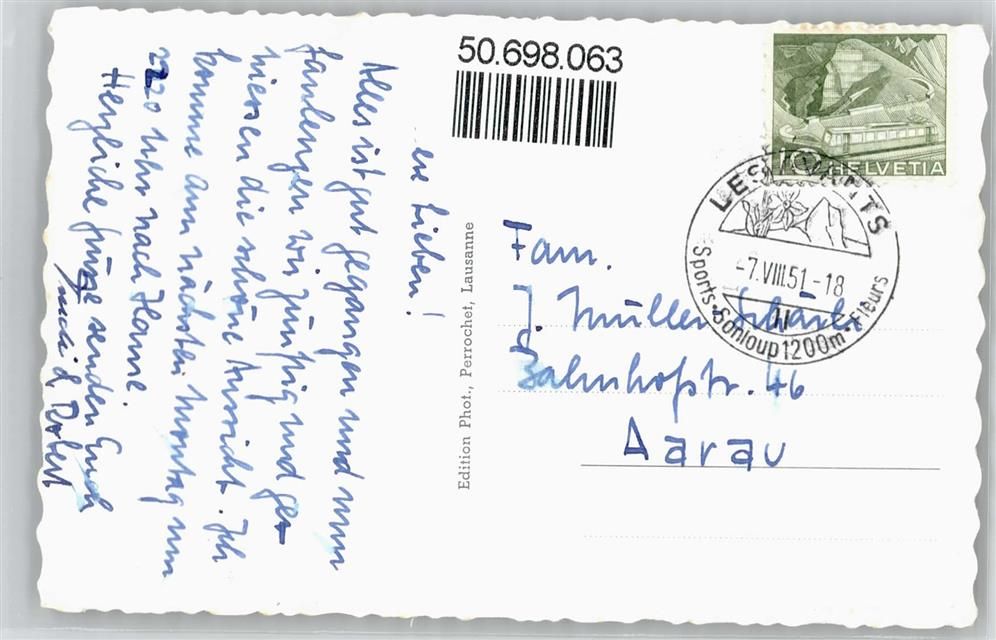 50.698.063
10 HELVETIA
LES AVANTS
-7.VIII.51-18
Sports·Sonloup 1200m·Fleurs
Edition Phot., Perrochet, Lausanne
Lieben!
Alles ist gut gegangen und nun
faulenzen wir zünftig und ge-
niessen die schöne Aussicht. Ich
komme am nächsten Montag um
2220 Uhr nach Hause.
Herzliche Grüsse senden Euch
& Robert
Fam.
J. Müller
Bahnhofstr. 46
Aarau